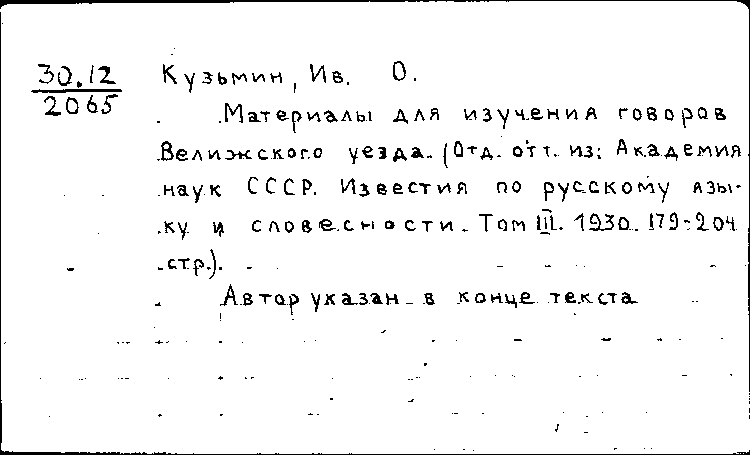 30.12 Кузьмин, Ив. О.
2065
Материалы для изучения говоров
Велижского уезда. (Отд. отт. из: Академия
наук СССР. Известия по русскому язы-
ку и словесности. Том III. 1930. 179-204
стр.).
Автор указан в конце текста